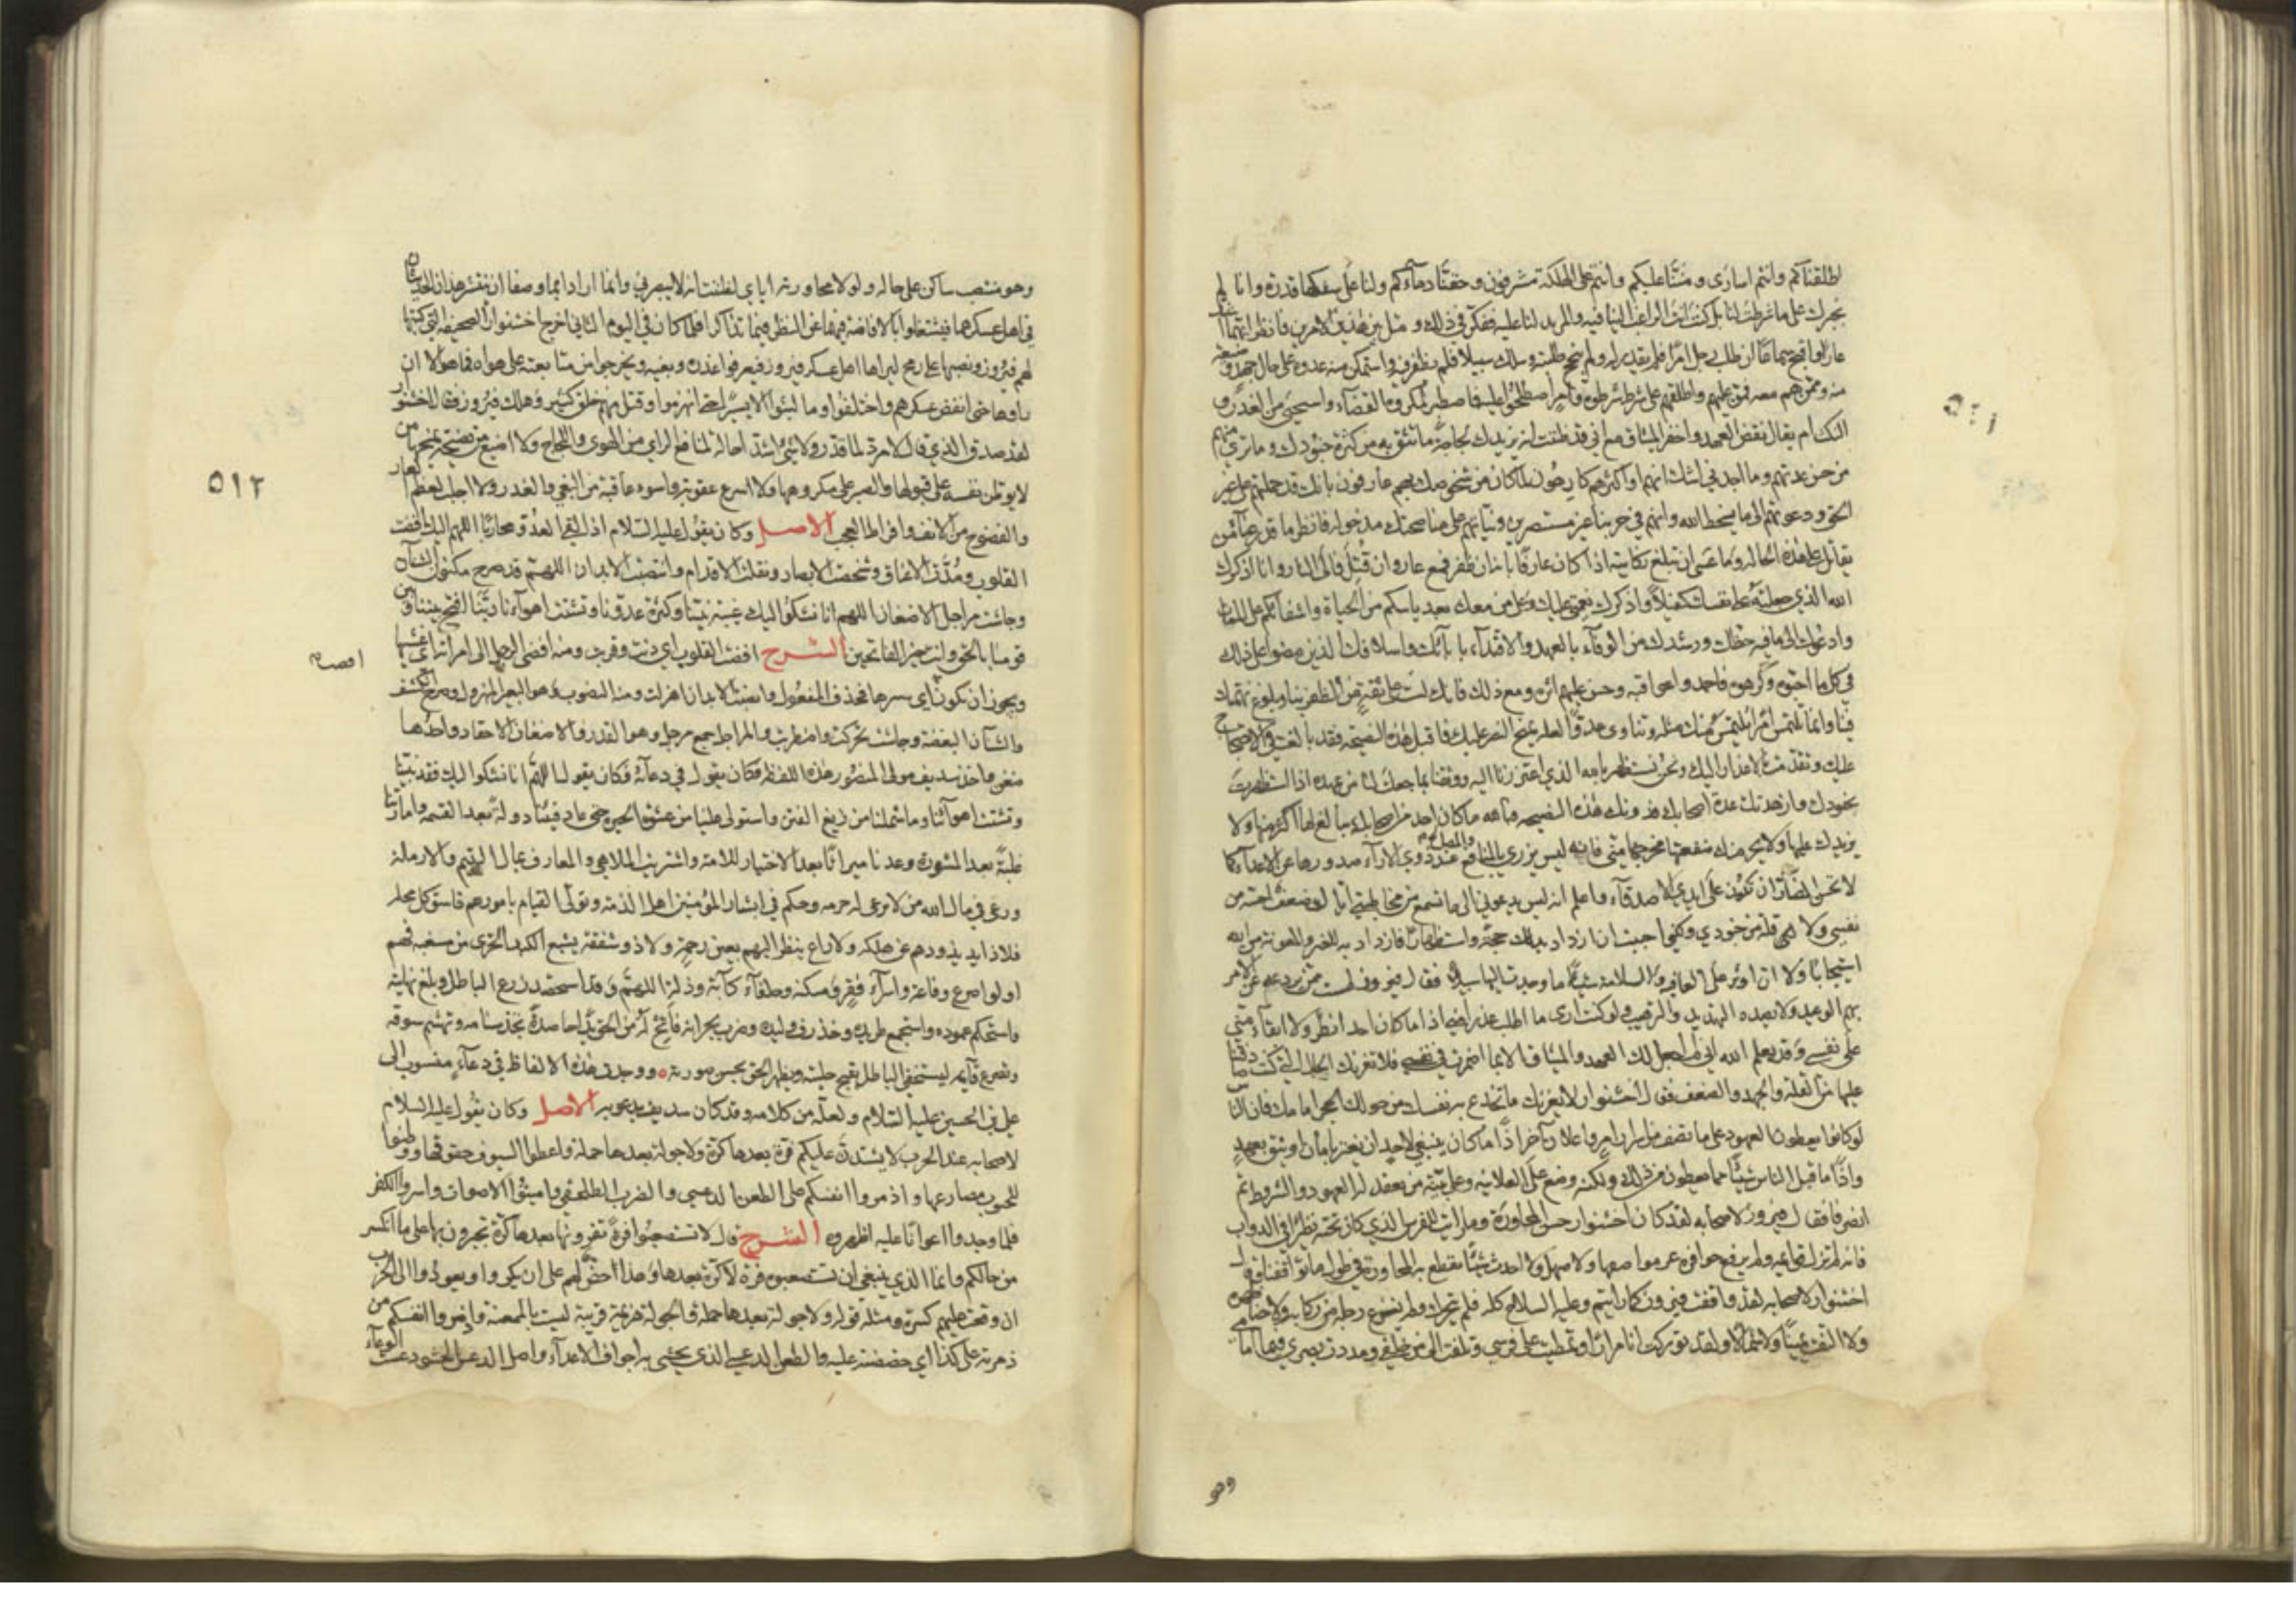 اطلقناكم وانتم اسارى ومننّا عليكم وانتم على الهلكة مشرفون وحقنّا دماءكم ولنا على سفكها قدرة وانا لم
نجبرك على ما شرطت لنا بل كنت انت الراغب الينا فيه والمريد لنا عليه ففكر في ذلك و مثل بين هذين الامرين فانظر ايهما اشد
عارا واقبح سماعا ان طلب رجل امرا فلم يقدر له ولم ينجح طلبته وسلك سبيلا فلم يظفر فيه واستمكن منه عدوه على حال جهد وضيعة
منه وممن هم معه فمن عليهم واطلقهم على شرط شرطوه وامر اصطلحوا عليه فاصطبر لمكروه القضاء واستحيى من الغدر و
النكث ام يقال نقض العهد واخفر الميثاق مع اني قد ظننت انه يزيدك لجاجة ما تثق به من كثرة جنودك وما ترى
من حسن عدتهم وما اجد ني اشك انهم او اكثرهم كارهون لما كان من شخوصك بهم عارفون بانك قد حملتهم على غير
الحق ودعوتهم الى ما يسخط الله وانهم في حربنا غير مستبصرين ونياتهم على مناصحتك مدخولة فانظر ما قدر غناء من
يقاتل على هذه الحالة وما عسى ان تبلغ نكايته اذا كان عارفا بانه ان ظفر فمع عار وان قتل فالى النار وانا اذكرك
الله الذي جعلته على نفسك كفيلا واذكرك نعمتي عليك وعلى من معك بعد ياسكم من الحياة واشفائكم على الممات
وادعوك الى ما فيه حظك ورشدك من الوفاء بالعهد والاقتداء بابائك واسلافك الذين مضوا على ذلك
في كل ما احبوه وكرهوه فاحمدوا عواقبه وحسن عليهم اثره ومع ذلك فانك لست على ثقة من الظفر بنا وبلوغ نهمتك
فينا وانما تلتمس امرا نلتمس منك مثله وتناوي عدوا لعله يمنح النصر عليك فاقبل هذه النصيحة فقد بالغت في الاحتجاج
عليك وتقدمت بالاعذار اليك ونحن نستظهر بالله الذي اعتززنا اليه ووثقنا بما جعلت لنا من عهده اذا استظهرت
بجنودك وازدهتك عدة اصحابك فدونك هذه النصيحة فبالله ما كان احد من اصحابك يبالغ لها اكثر منها ولا
يزيدك عليها ولا يحرمنك منفعتها مخرجها مني فانه ليس يزري بالمنافع والمصالح عند ذوي الاراء صدورها عن الاعداء كما
لا تحسن المضار ان تكون على ايدي الاصدقاء واعلم انه ليس يدعوني الى ما تسمع من مخاطبتي اياك ضعف احسه من
نفسي ولا قلة من جنودي ولكني احببت ان ازداد بذلك حجة واستظهارا فازداد به للنصر والمعونة من الله
استيجابا ولا اوثر على العافية والسلامة شيئا ما وجدت اليهما سبيلا فقال فيروز لست ممن يردعه عن الامر
يهم به الوعيد ولا يصده التهديد والترهيب ولو كنت ارى ما اطلب غدرا مني اذا ما كان احد انظر ولا ابقى مني
على نفسي وقد يعلم الله اني لم اجعل لك العهد والميثاق الا بما اضمرت في نفسي فلا يغرنك الحال التي كنت صادفتنا
عليها من القلة والجهد والضعف فقال اخشنوار لا يغرنك ما تخدع به نفسك من حملك الحجر امامك فان الناس
لو كانوا يعطون العهود على ما تصف من اسرار امر واعلان اخر اذا ما كان ينبغي لاحد ان يغتر بامان او يثق بعهد
واذا ما قبل الناس شيئا مما يعطون من ذلك ولكنه وضع على العلانية وعلى نية من تعقد له العهود والشروط ثم
انصرفا فقال فيروز لاصحابه لقد كان اخشنوار حسن المحاورة وما رايت للفرس الذي كان تحته نظيرا في الدواب
فانه لم يزل قوائمه ولم يرفع حوافره عن مواضعها ولا صهل ولا احدث شيئا يقطع به المحاورة في طول ما تواقفنا وقال
اخشنوار لاصحابه لقد واقفت فيروز كما رايتم وعليه السلاح كله فلم يتحرك ولم ينزع رجله من ركابه ولا حنا ظهره
ولا التفت يمينا ولا شمالا ولقد توركت انا مرارا وتمطيت على فرسي وتلفت الى من خلفي ومددت بصري فيما امامي
وهو
٥١١
وهو منتصب ساكن على حاله ولولا محاورته اياي لظننت انه لا يبصرني وانما ارادا بما وصفا ان ينتشر هذان الحديثان
في اهل عسكرهما فيشتغلوا بالافاضة فيهما عن النظر فيما تذاكرا فلما كان في اليوم الثاني اخرج اخشنوار الصحيفة التي كتبها
لهم فيروز ونصبها على رمح ليراها اهل عسكر فيروز فيعرفوا غدره وبغيه ويخرجوا من متابعته على هواه فما هو الا ان
راوها حتى انتقض عسكرهم واختلفوا وما لبثوا الا يسيرا حتى انهزموا وقتل منهم خلق كثير وهلك فيروز فقال اخشنوار
لقد صدق الذي قال لا مرد لما قدر ولا شيء اشد احالة لمنافع الراي من الهوى واللجاج ولا اضيع من نصيحة يمنحها من
لا يوطن نفسه على قبولها والصبر على مكروهها ولا اسرع عقوبة واسوء عاقبة من البغي والغدر ولا اجلب لعظيم العار
والفضوح من الانف وافراط العجب الاصل وكان يقول عليه السلام اذا لقي العدو محاربا اللهم اليك افضت
القلوب ومدت الاعناق وشخصت الابصار ونقلت الاقدام وانضيت الابدان اللهم قد صرح مكنون الشنآن
وجاشت مراجل الاضغان اللهم انا نشكو اليك غيبة نبينا وكثرة عدونا وتشتت اهوائنا ربنا افتح بيننا وبين
قومنا بالحق وانت خير الفاتحين الشرح افضت القلوب اي دنت وقربت ومنه افضى الرجل الى امراته اي غشيها
ويجوز ان يكون اي بسرها فحذف المفعول وانضيت الابدان اهزلت ومنه النضو وهو البعير المهزول وصرح انكشف
والشنآن البغضة وجاشت تحركت واضطربت والمراجل جمع مرجل وهو القدر والاضغان الاحقاد واحدها
ضغن واخذ سديف مولى المنصور هذه اللفظة فكان يقول في دعائه فكان يقول اللهم انا نشكو اليك فقد نبينا
وتشتت اهوائنا وما شملنا من زيغ الفتن واستولى علينا من غشوة الحيرة حتى عاد فيئنا دولة بعد القسمة وامارتنا
غلبة بعد المشورة وعدنا ميراثا بعد الاختيار للامة واشتريت الملاهي والمعازف بمال اليتيم والارملة
ورعى في مال الله من لا يرعى له حرمة وحكم في ابشار المؤمنين اهل الذمة وتولى القيام بامورهم فاسق كل محلة
فلا ذائد يذودهم عن هلكة ولا راع ينظر اليهم بعين رحمة ولا ذو شفقة يشبع الكبد الحرى من مسغبة فهم
اولوا ضرع وفاقة واسراء فقر ومسكنة وحلفاء كآبة وذلة اللهم وقد استحصد زرع الباطل وبلغ نهايته
واستحكم عموده واستجمع طريده وحذرف وليده وضرب بجرانه فاتح له من الحق يدا حاصدة تجذ سنامه وتهشم سوقه
وتصرع قائمه ليستخفي الباطل بقبح حليته ويظهر الحق بحسن صورته ووجدت هذه الالفاظ في دعاء منسوب الى
علي بن الحسين عليه السلام ولعله من كلامه وقد كان سديف يدعو به الاصل وكان يقول عليه السلام
لاصحابه عند الحرب لا يشتدن عليكم فرة بعدها كرة ولا جولة بعدها حملة واعطوا السيوف حقوقها ووطنوا
للجنوب مصارعها واذمروا انفسكم على الطعن الدعسي والضرب الطلحفي واميتوا الاصوات واسروا الكفر
فلما وجدوا اعوانا عليه اظهروه الشرح قال لا تستصعبوا فرة تفرونها بعدها كرة تجبرون بها على ما انكسر
من حالكم وانما الذي ينبغي ان تستصعبوه فرة لا كرة بعدها وهذا حض لهم على ان يكروا ويعودوا الى الحرب
ان وقعت عليهم كسرة ومثله قوله ولا جولة بعدها حملة والجولة هزيمة قريبة ليست بالممعنة واذمروا انفسكم من
ذمرته على كذا اي حضضته عليه والطعن الدعسي الذي يحشى به اجواف الاعداء واصل الدعس الحشو دعست الوعاء
٥١٢